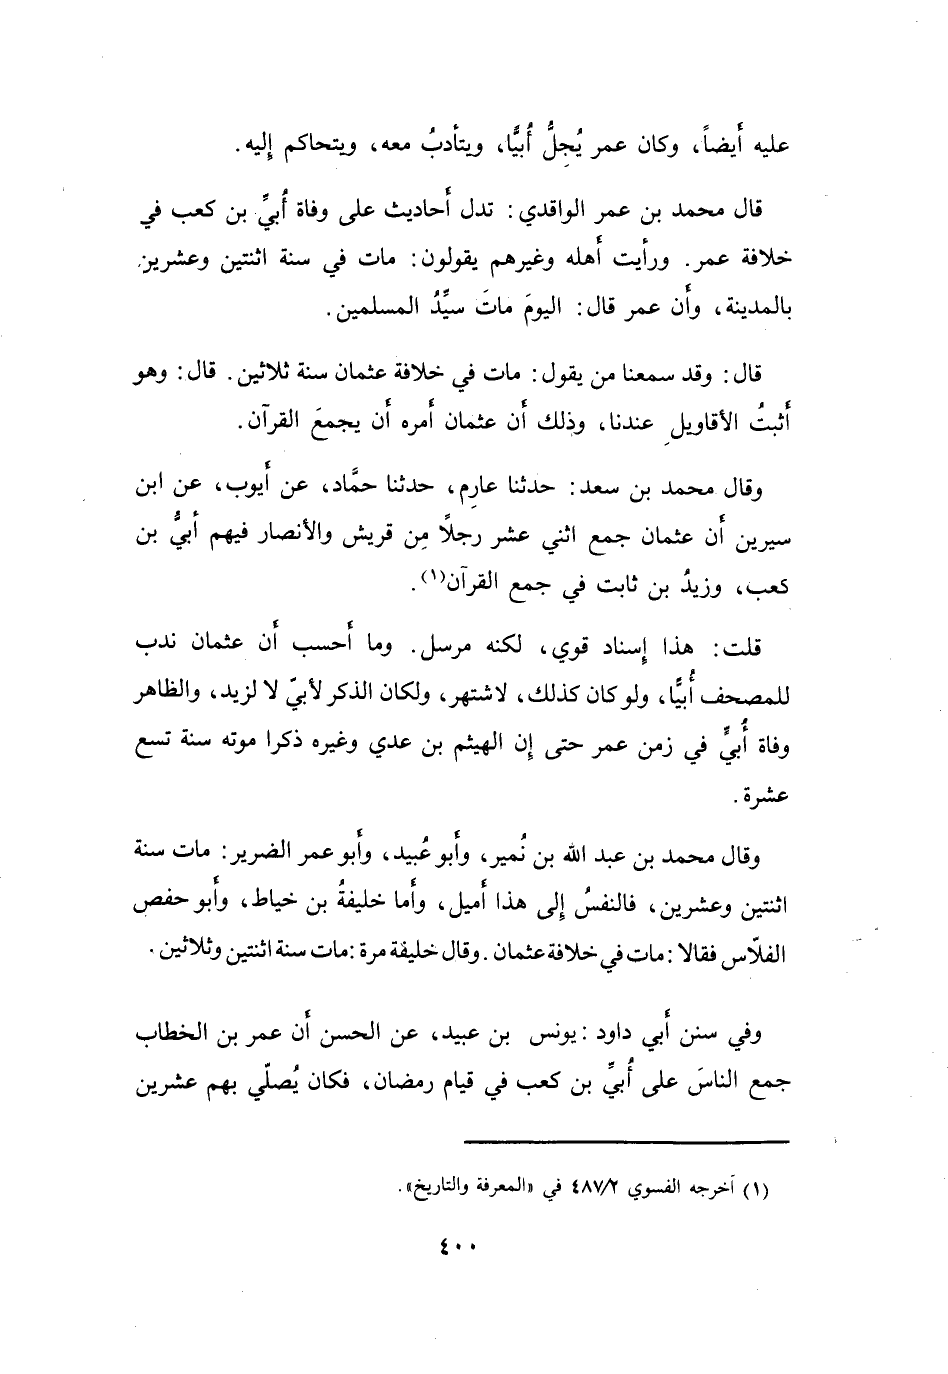 عليه أَيضاً، وكان عمر يُجلُّ أُبيًّا، ويتأدبُ معه، ويتحاكم إليه.
قال محمد بن عمر الواقدي: تدل أَحاديث على وفاة أُبيِّ بن كعب في
خلافة عمر. ورأيت أَهله وغيرهم يقولون: مات في سنة اثنتين وعشرين
بالمدينة، وأَن عمر قال: اليومَ ماتَ سيِّدُ المسلمين.
قال: وقد سمعنا من يقول: مات في خلافة عثمان سنة ثلاثين. قال: وهو
أَثبتُ الأقاويل عندنا، وذلك أَن عثمان أَمره أَن يجمعَ القرآن.
وقال محمد بن سعد: حدثنا عارم، حدثنا حمَّاد، عن أَيوب، عن ابن
سيرين أَن عثمان جمع اثني عشر رجلًا مِن قريش والأنصار فيهم أبيُّ بن
كعب، وزيدُ بن ثابت في جمع القرآن(١).
قلت: هذا إسناد قوي، لكنه مرسل. وما أَحسب أَن عثمان ندب
للمصحف أُبيًّا، ولو كان كذلك، لاشتهر، ولكان الذكر لأبيّ لا لزيد، والظاهر
وفاة أُبيٍّ في زمن عمر حتى إن الهيثم بن عدي وغيره ذكرا موته سنة تسع
عشرة.
وقال محمد بن عبد الله بن نُمير، وأَبو عُبيد، وأَبو عمر الضرير: مات سنة
اثنتين وعشرين، فالنفسُ إلى هذا أَميل، وأَما خليفةُ بن خياط، وأَبو حفص
الفلّاس فقالا: مات في خلافة عثمان. وقال خليفة مرة: مات سنة اثنتين وثلاثين.
وفي سنن أَبي داود: يونس بن عبيد، عن الحسن أَن عمر بن الخطاب
جمع الناسَ على أُبيِّ بن كعب في قيام رمضان، فكان يُصلّي بهم عشرين
(١) أخرجه الفسوي ٤٨٧/٢ في «المعرفة والتاريخ».
٤٠٠